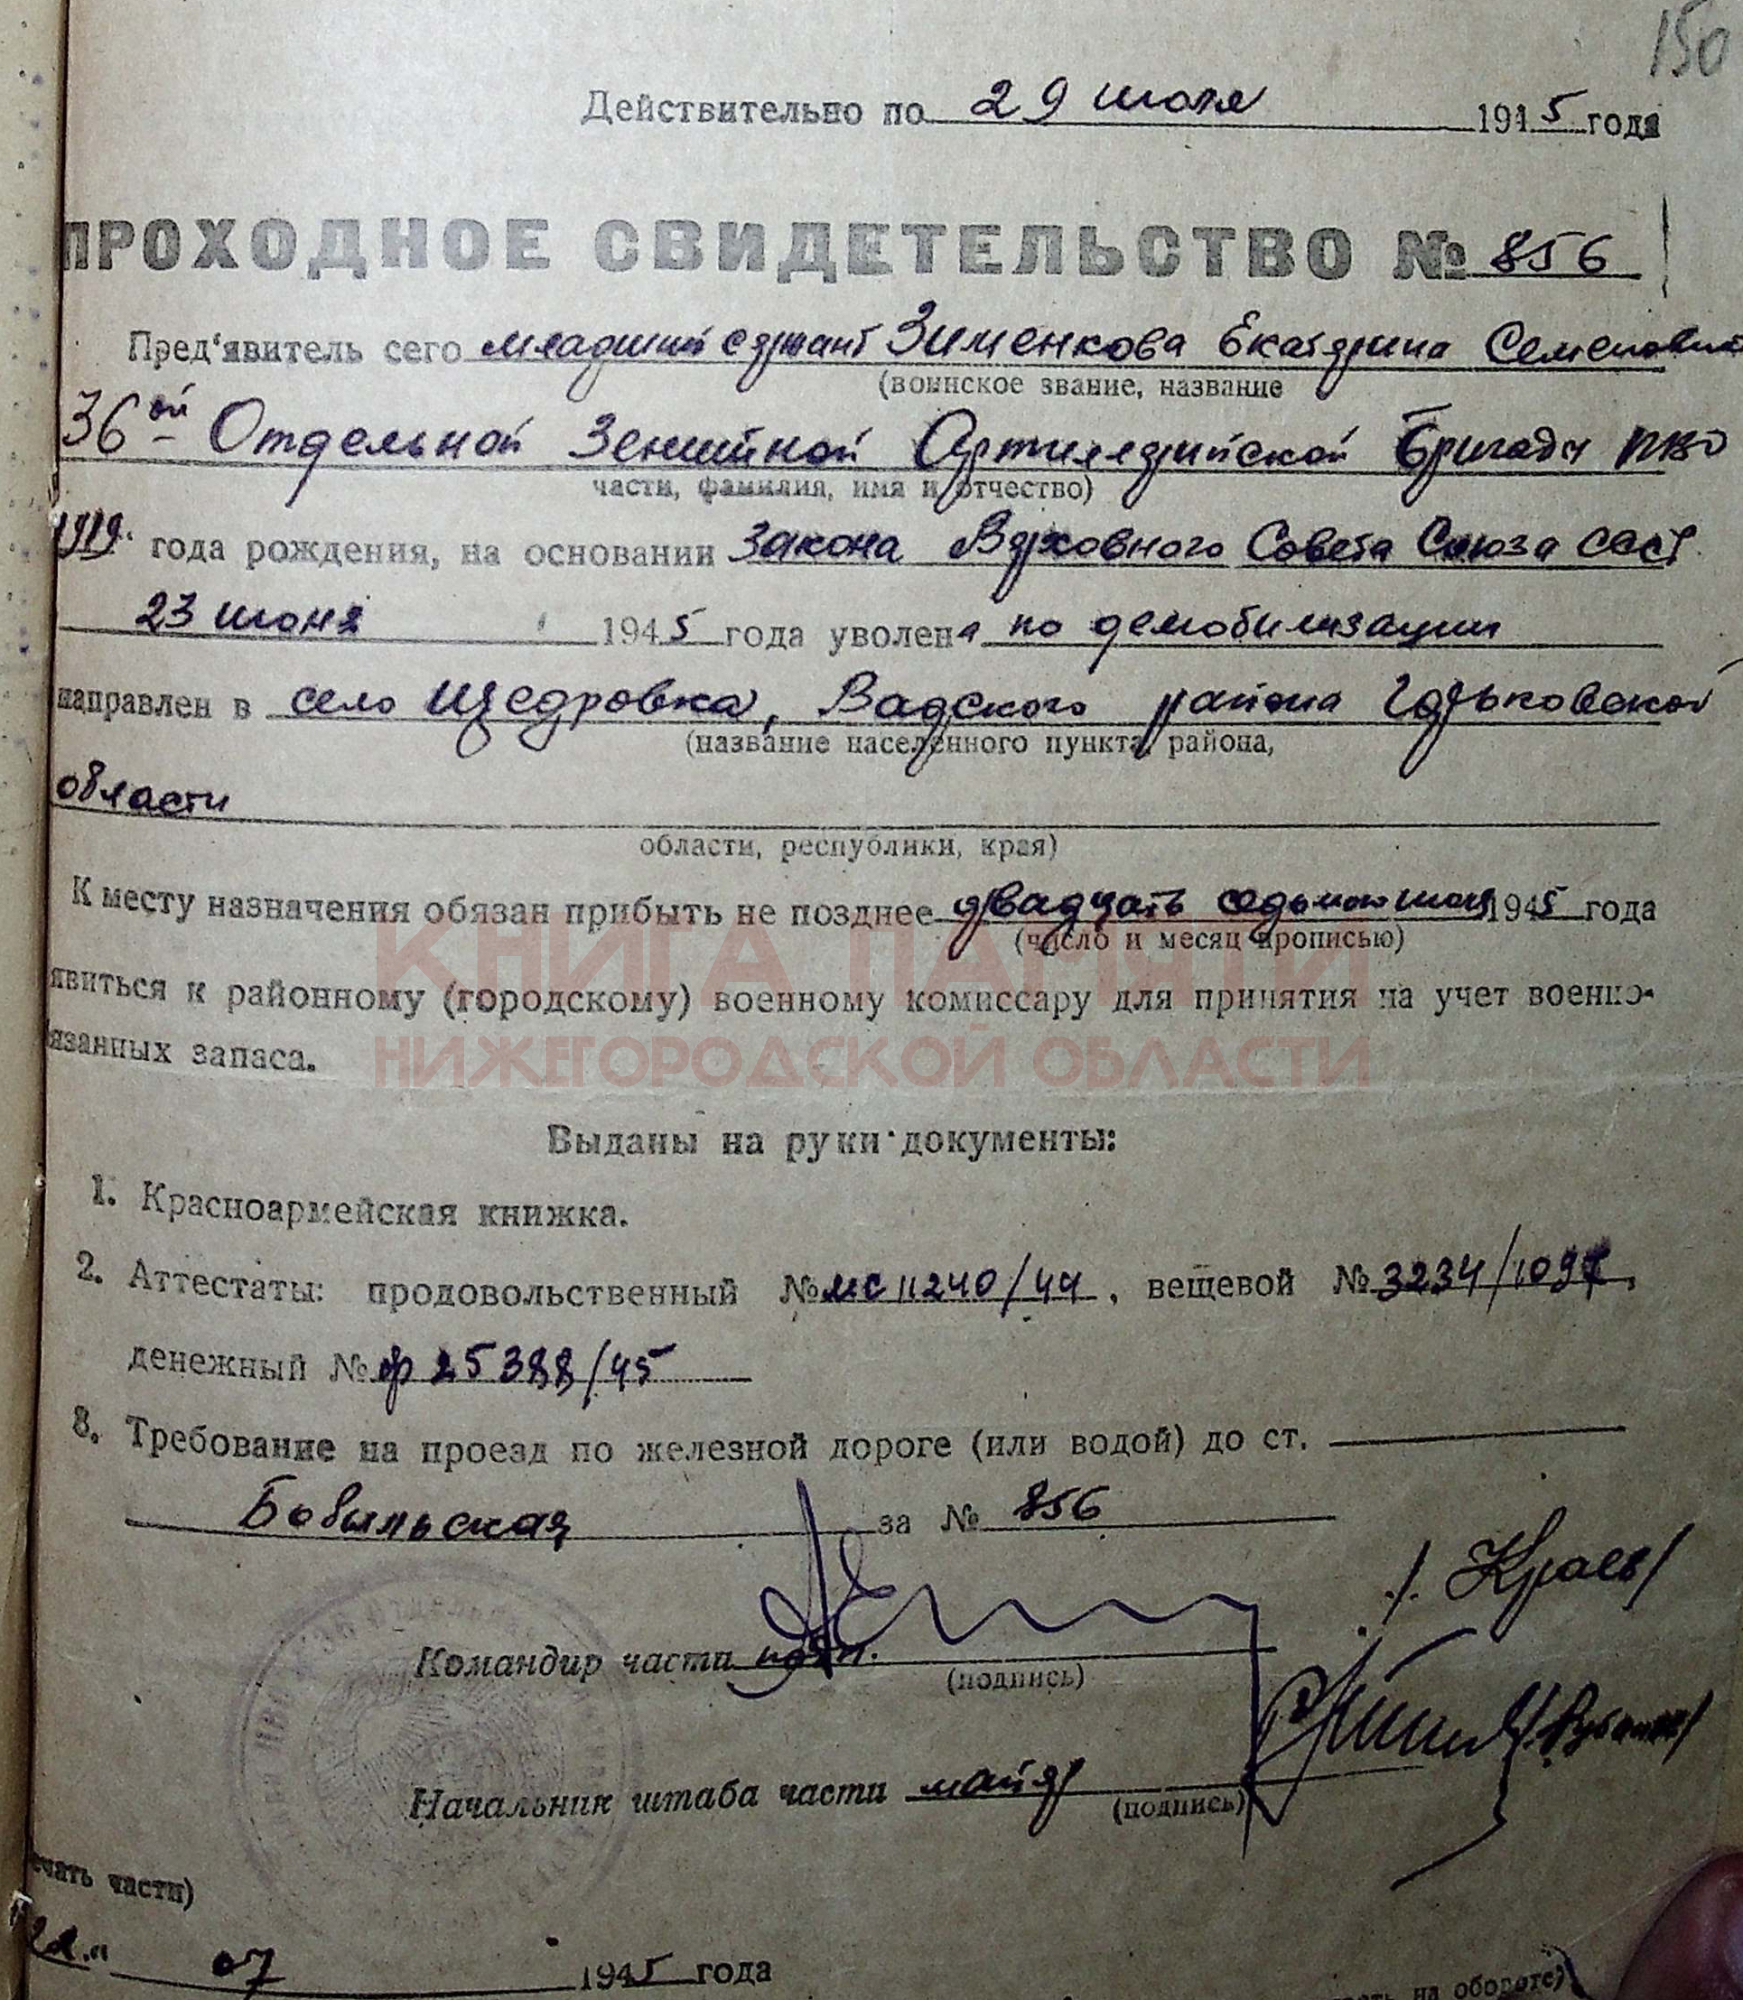 150
Действительно по 29 июля 1945 года
ПРОХОДНОЕ СВИДЕТЕЛЬСТВО № 856
Пред'явитель сего младший сержант Зименкова Екатерина Семеновна
(воинское звание, название
36ой Отдельной Зенитной Артиллерийской Бригады ПВО
части, фамилия, имя и отчество)
1919 года рождения, на основании Закона Верховного Совета Союза ССР
23 июня 1945 года уволена по демобилизации
направлен в село Щедровка, Вадского района Горьковской
(название населенного пункта, района,
области
области, республики, края)
К месту назначения обязан прибыть не позднее двадцать седьмого июля 1945 года
(число и месяц прописью)
явиться к районному (городскому) военному комиссару для принятия на учет военно-
язанных запаса.
КНИГА ПАМЯТИ
НИЖЕГОРОДСКОЙ ОБЛАСТИ
Выданы на руки документы:
1. Красноармейская книжка.
2. Аттестаты: продовольственный № МС 11240/44, вещевой № 3234/
денежный № 25388/45
3. Требование на проезд по железной дороге (или водой) до ст.
Бобыльская за № 856
/Краев/
Командир части
(подпись)
Начальник штаба части майор
(подпись)
ечать части)
22." 07 1945 года
на обороте)